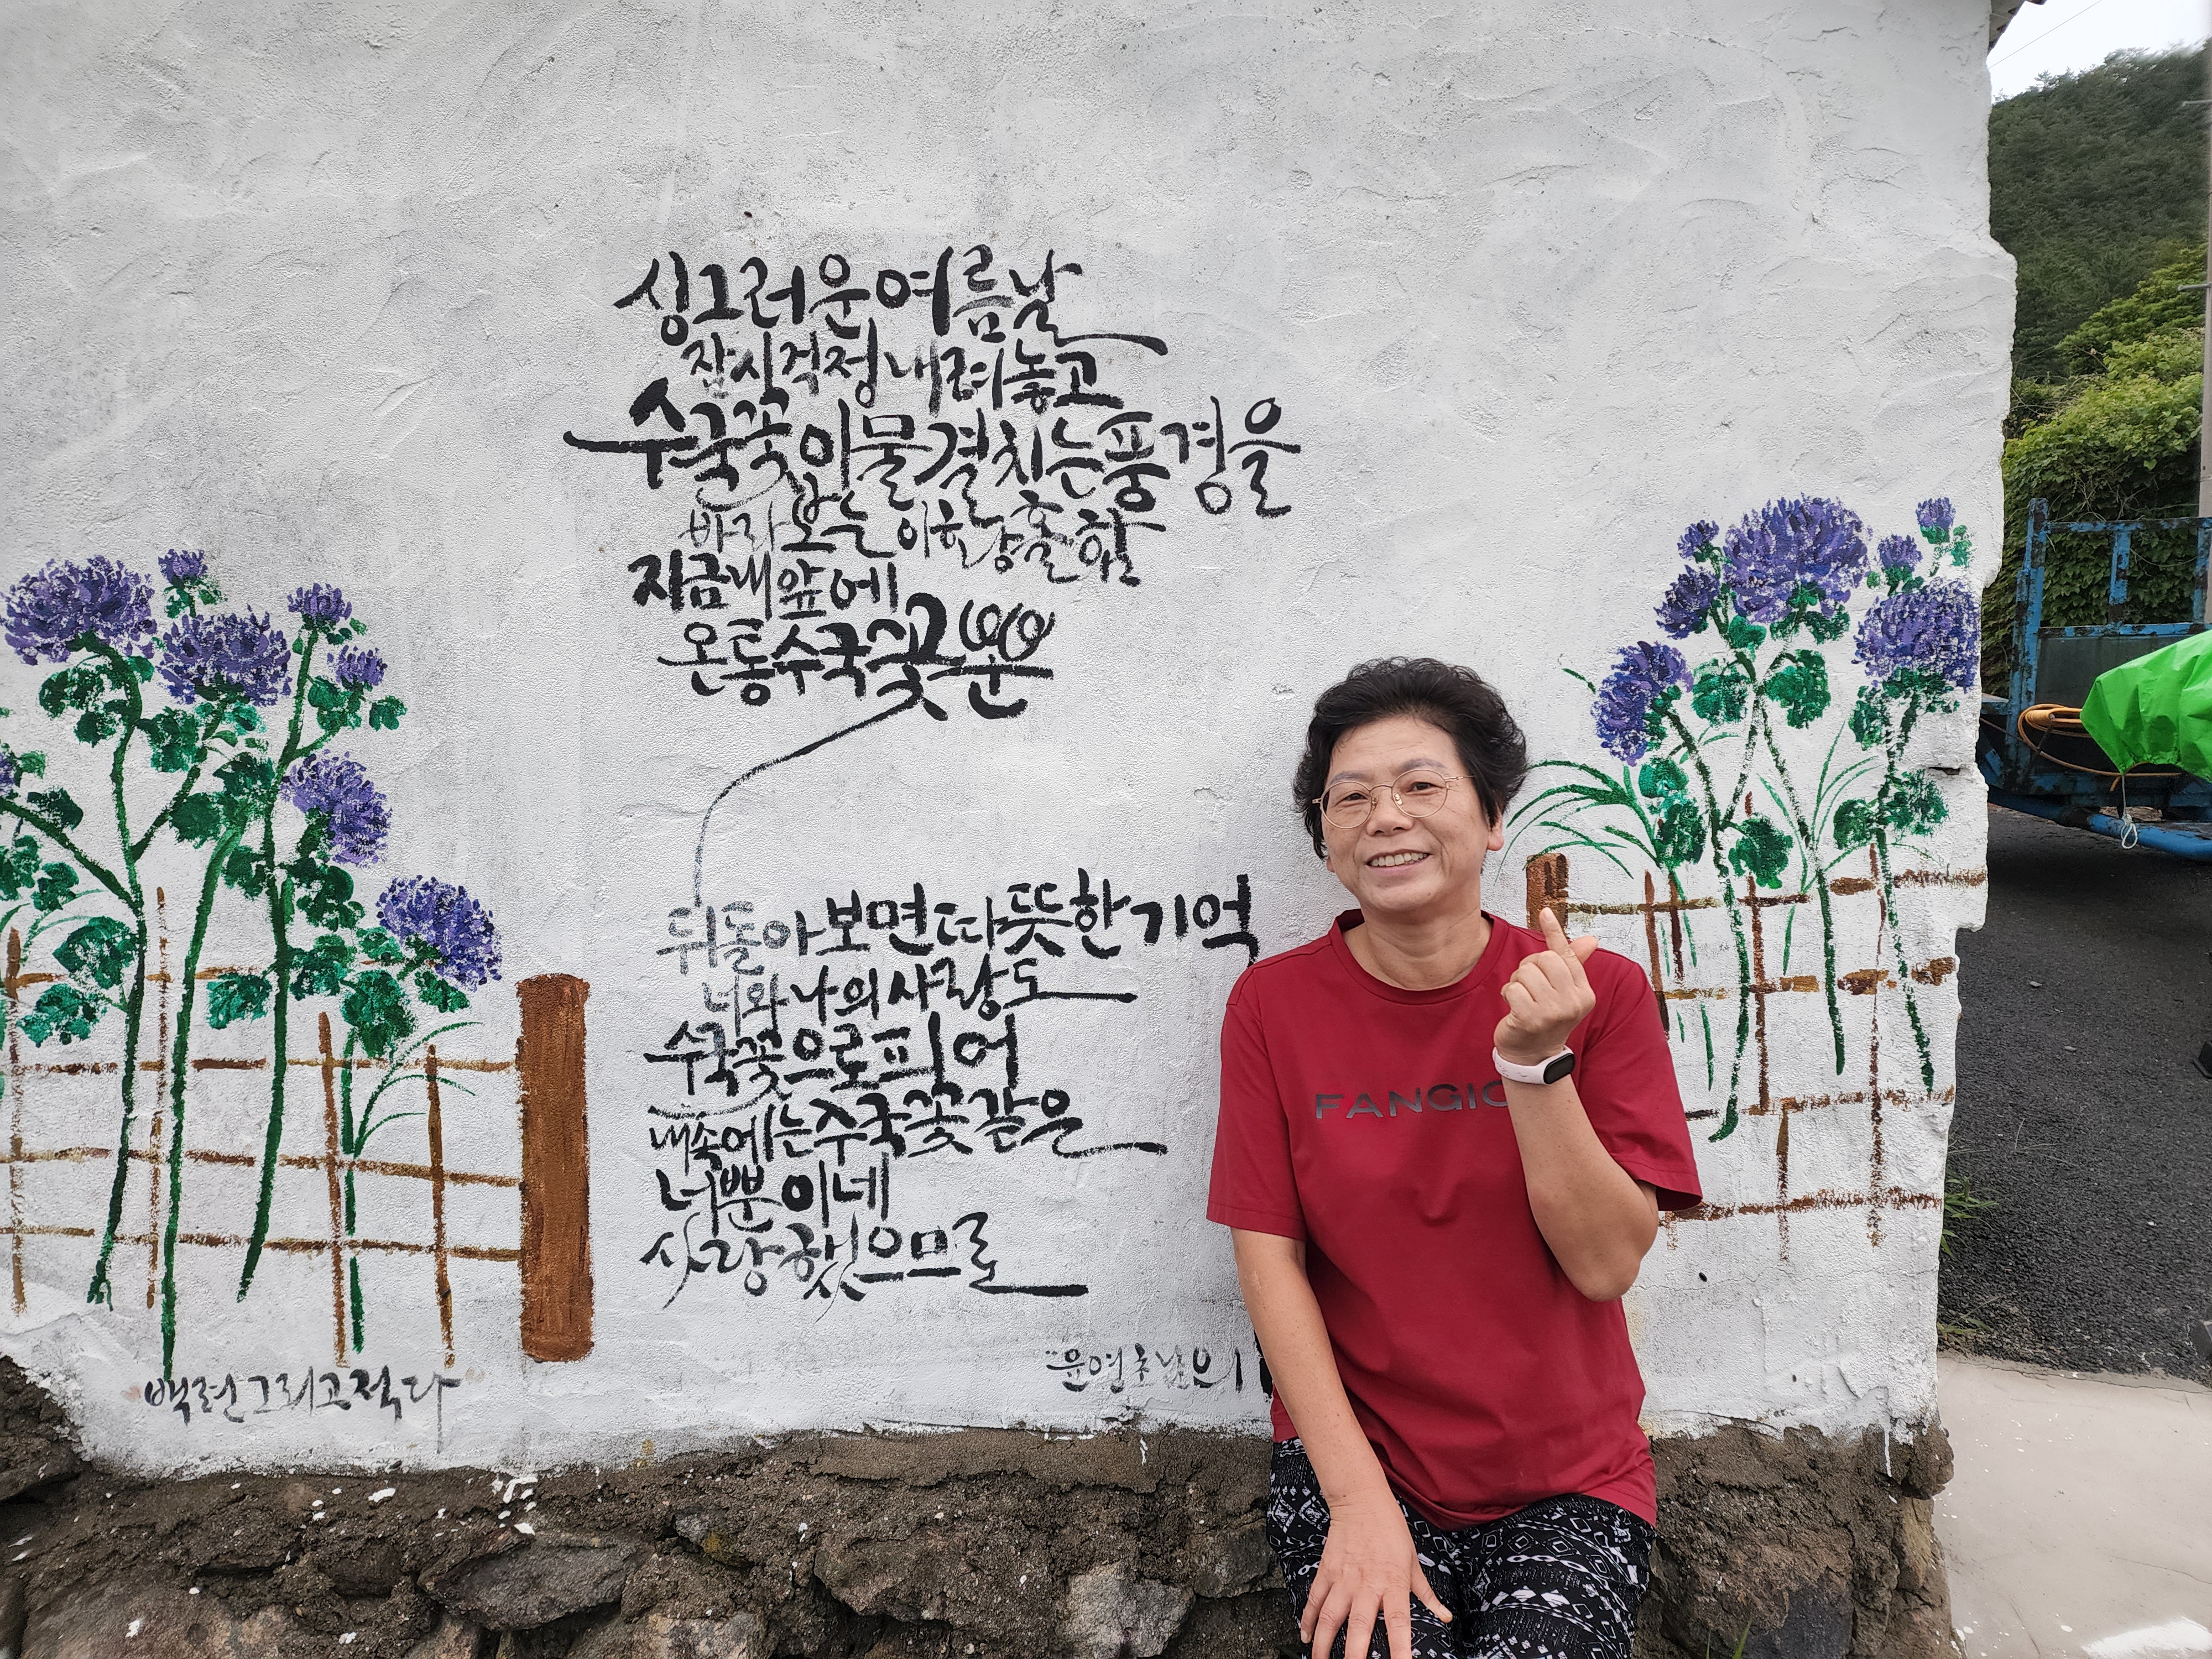 싱그러운 여름날
잠시 걱정 내려놓고
수국꽃이 물결치는 풍경을
바라보는 이 황홀함
지금 내 앞에
온통 수국꽃뿐
뒤돌아보면 따뜻한 기억
너와 나의 사랑도
수국꽃으로 피어
내 속에는 수국꽃 같은
너뿐이네
사랑했으므로
백련 그리고 적다
FANGIO